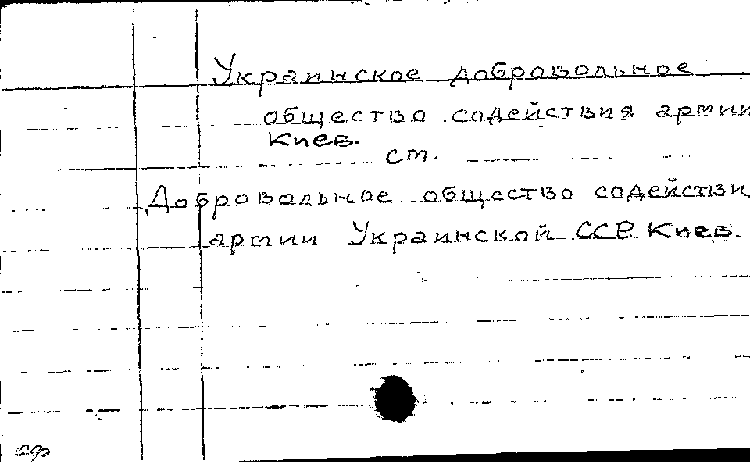 Украинское добровольное
общество содействия армии
Киев.
см.
Добровольное общество содействи
армии Украинской ССР. Киев.